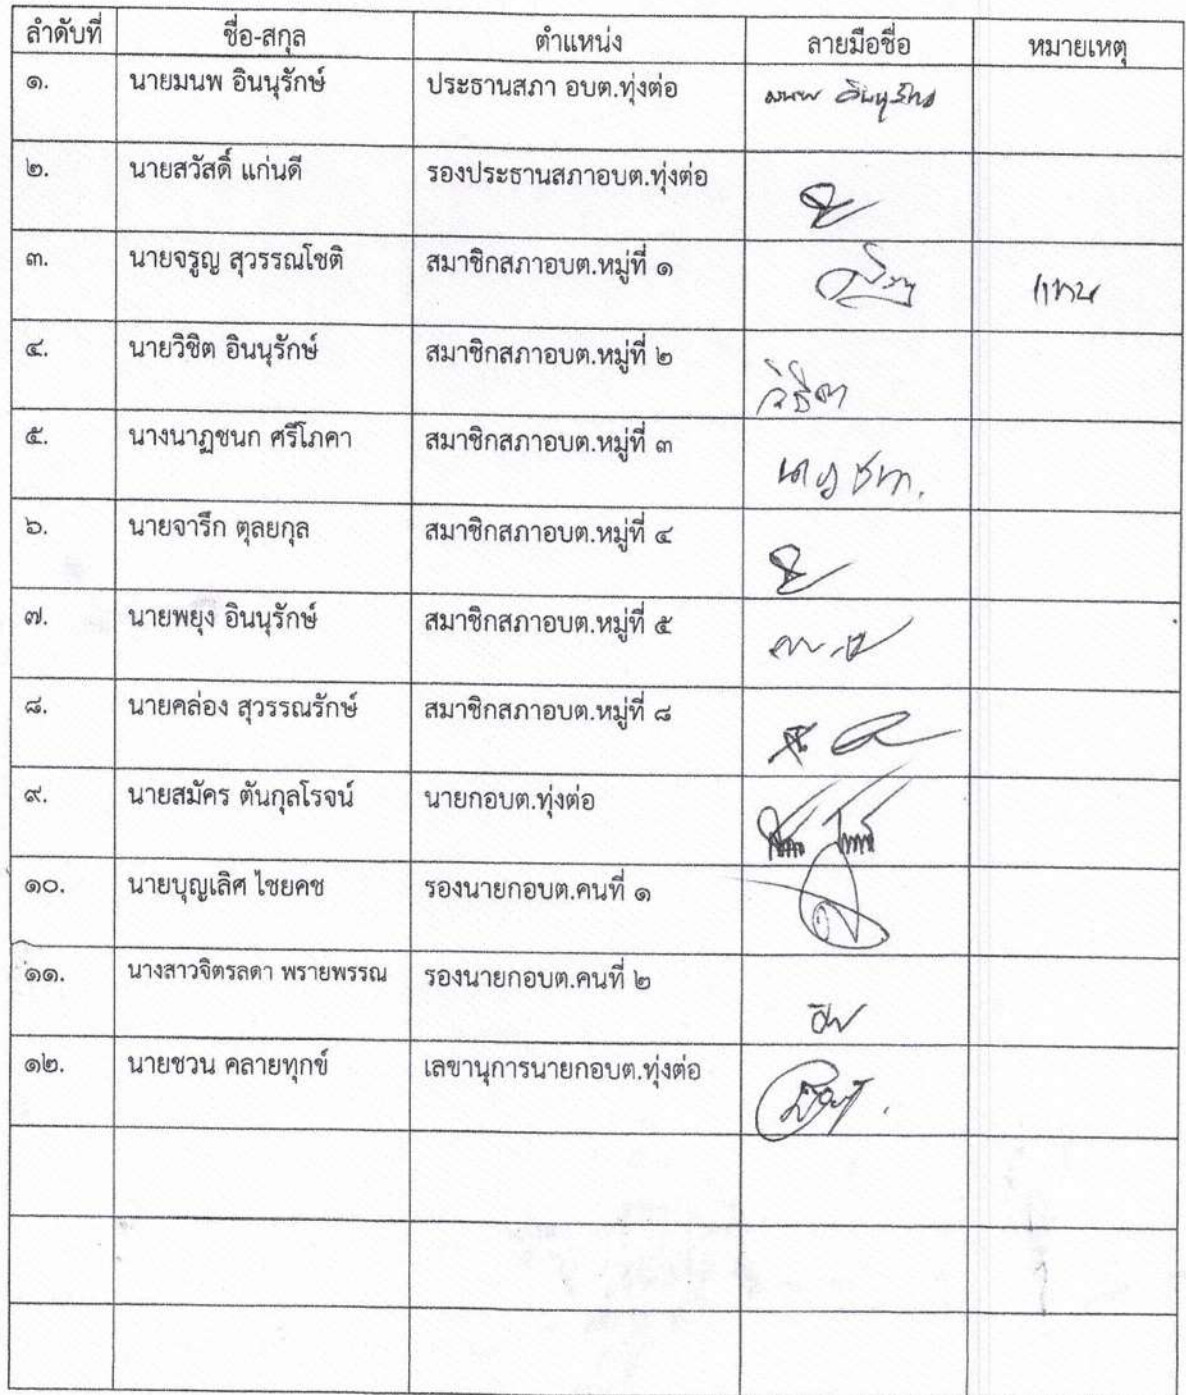 ลำดับที่ ชื่อ-สกุล ตำแหน่ง ลายมือชื่อ หมายเหตุ
๑. นายมนพ อินนุรักษ์ ประธานสภา อบต.ทุ่งต่อ มนพ อินนุรักษ์
๒. นายสวัสดิ์ แก่นดี รองประธานสภาอบต.ทุ่งต่อ
๓. นายจรูญ สุวรรณโชติ สมาชิกสภาอบต.หมู่ที่ ๑ แทน
๔. นายวิชิต อินนุรักษ์ สมาชิกสภาอบต.หมู่ที่ ๒
๕. นางนาฏชนก ศรีโภคา สมาชิกสภาอบต.หมู่ที่ ๓
๖. นายจารึก ตุลยกุล สมาชิกสภาอบต.หมู่ที่ ๔
๗. นายพยุง อินนุรักษ์ สมาชิกสภาอบต.หมู่ที่ ๕
๘. นายคล่อง สุวรรณรักษ์ สมาชิกสภาอบต.หมู่ที่ ๘
๙. นายสมัคร ตันกุลโรจน์ นายกอบต.ทุ่งต่อ
๑๐. นายบุญเลิศ ไชยคช รองนายกอบต.คนที่ ๑
๑๑. นางสาวจิตรลดา พรายพรรณ รองนายกอบต.คนที่ ๒
๑๒. นายชวน คลายทุกข์ เลขานุการนายกอบต.ทุ่งต่อ